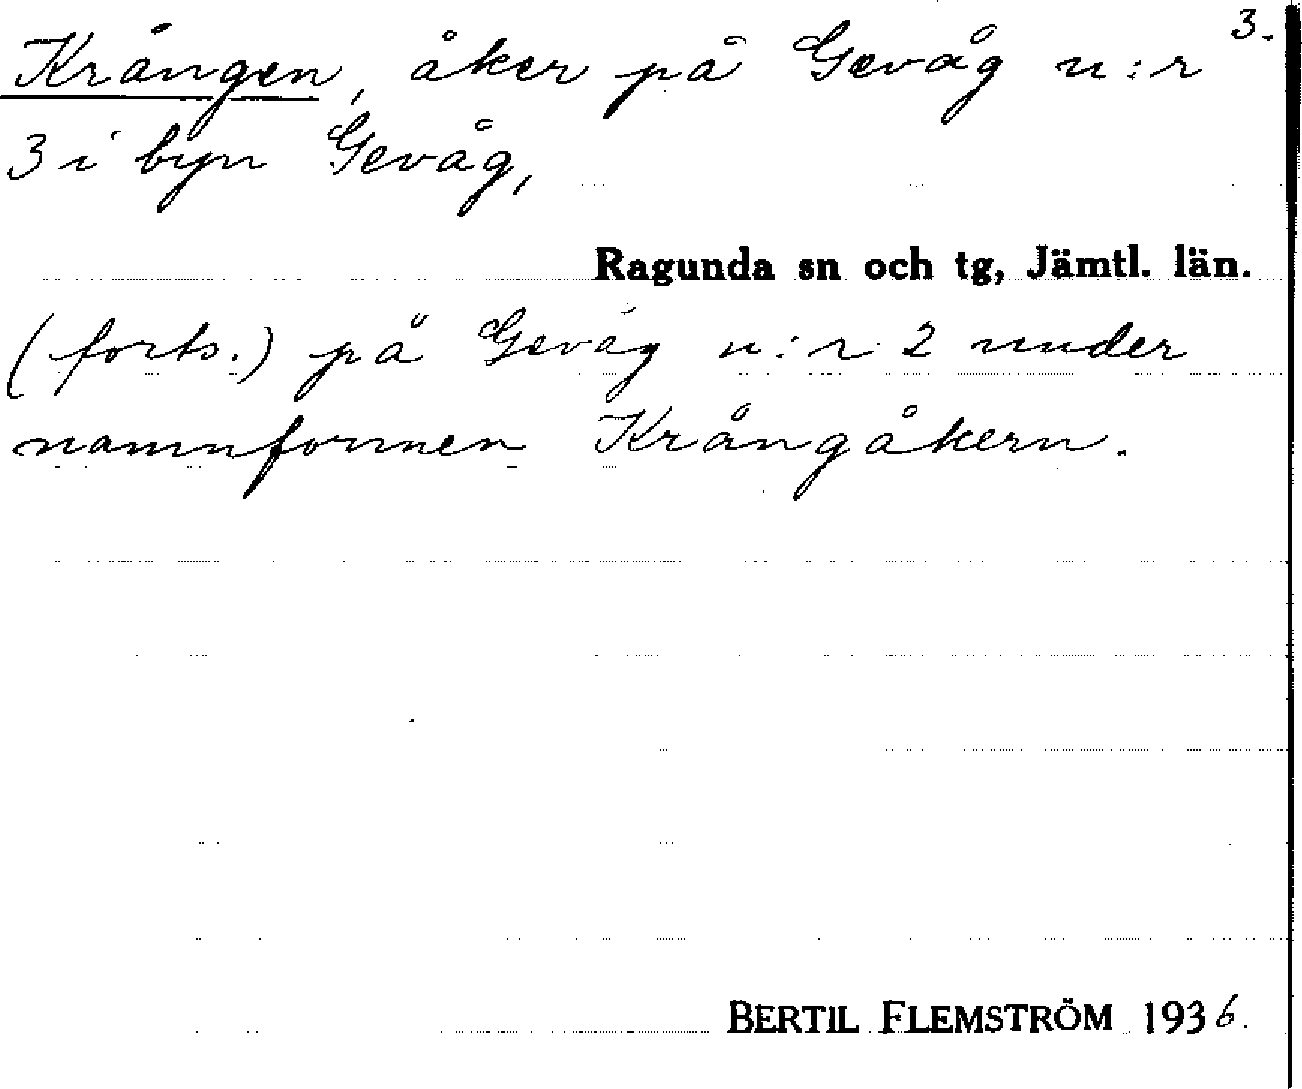 3.
Krången, åker på Gevåg n:r
3 i byn Gevåg,
Ragunda sn och tg, Jämtl. län.
(forts.) på Gevåg n:r 2 under
namnformen Krångåkern.
BERTIL FLEMSTRÖM 1936.